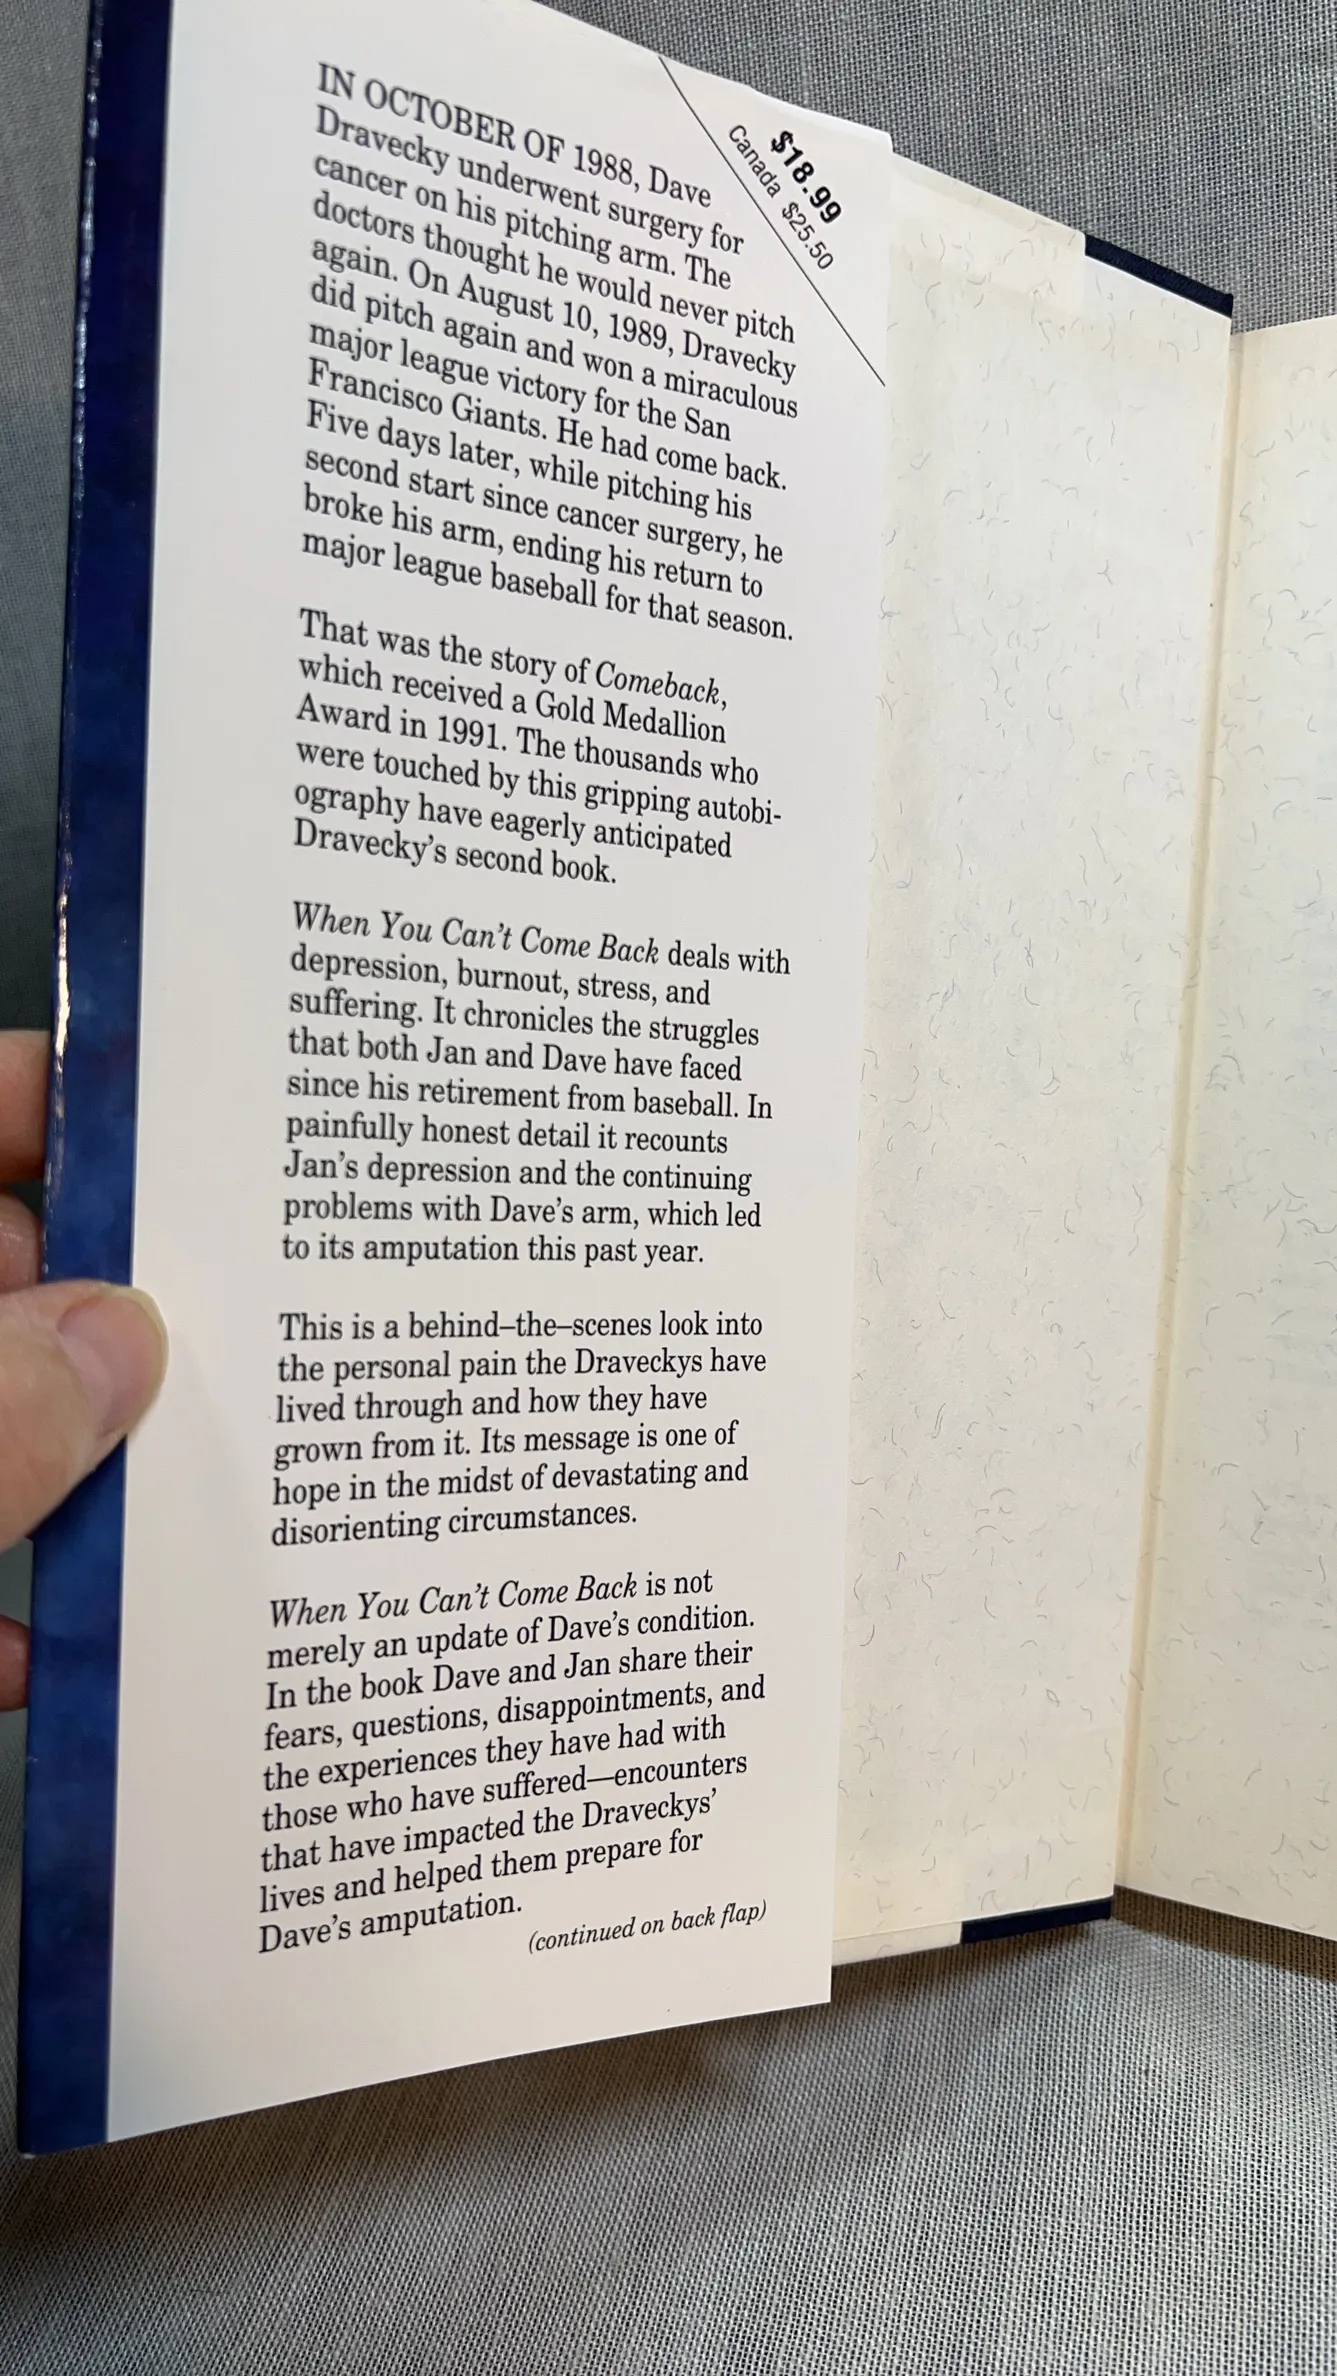 $18.99
Canada $25.50
IN OCTOBER OF 1988, Dave
Dravecky underwent surgery for
cancer on his pitching arm. The
doctors thought he would never pitch
again. On August 10, 1989, Dravecky
did pitch again and won a miraculous
major league victory for the San
Francisco Giants. He had come back.
Five days later, while pitching his
second start since cancer surgery, he
broke his arm, ending his return to
major league baseball for that season.
That was the story of Comeback,
which received a Gold Medallion
Award in 1991. The thousands who
were touched by this gripping autobi-
ography have eagerly anticipated
Dravecky's second book.
When You Can't Come Back deals with
depression, burnout, stress, and
suffering. It chronicles the struggles
that both Jan and Dave have faced
since his retirement from baseball. In
painfully honest detail it recounts
Jan's depression and the continuing
problems with Dave's arm, which led
to its amputation this past year.
This is a behind–the–scenes look into
the personal pain the Draveckys have
lived through and how they have
grown from it. Its message is one of
hope in the midst of devastating and
disorienting circumstances.
When You Can't Come Back is not
merely an update of Dave's condition.
In the book Dave and Jan share their
fears, questions, disappointments, and
the experiences they have had with
those who have suffered—encounters
that have impacted the Draveckys'
lives and helped them prepare for
Dave's amputation.
(continued on back flap)